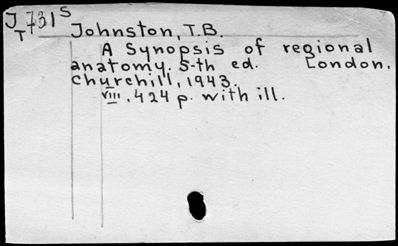 J731S
T
Johnston, T.B.
A synopsis of regional
anatomy. 5-th ed. London,
Churchill, 1943.
VIII, 424 p. with ill.